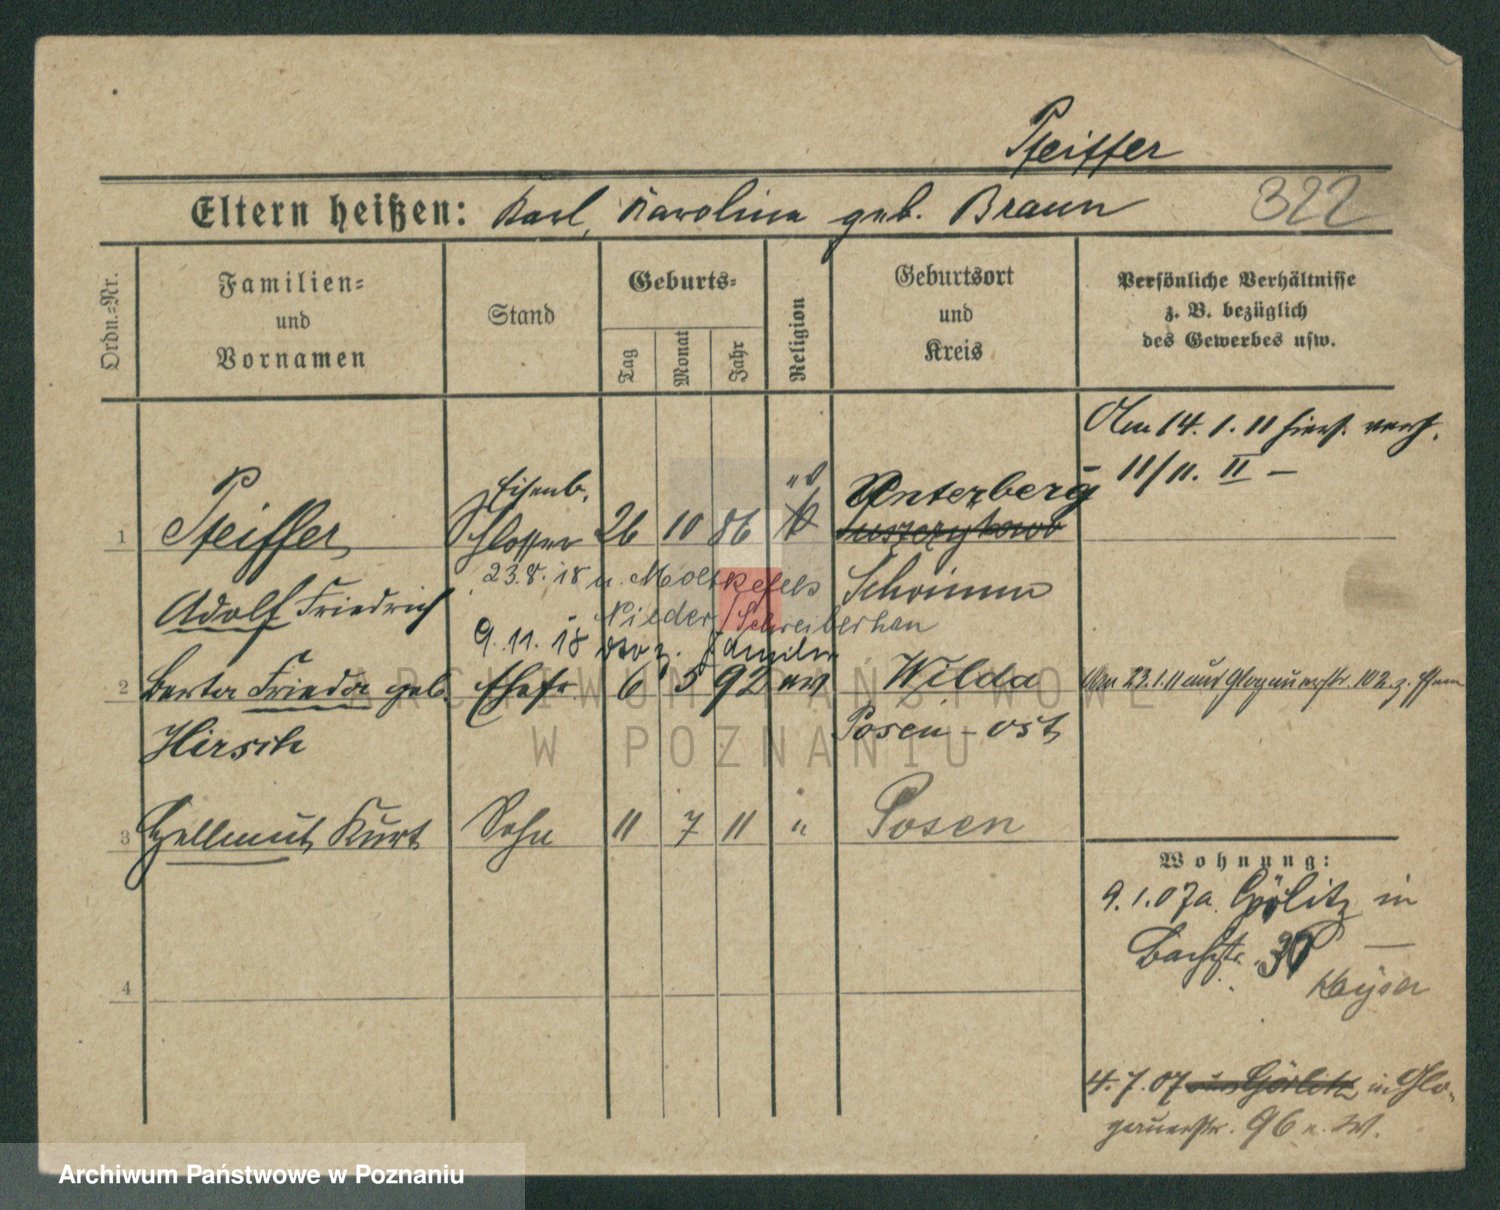 Pfeiffer
Eltern heißen: Karl, Karolina geb. Braun
322
Ordn.-Nr.
Familien-
und
Vornamen
Stand
Geburts-
Tag
Monat
Jahr
Religion
Geburtsort
und
Kreis
Persönliche Verhältnisse
z. B. bezüglich
des Gewerbes usw.
Am 14. 1. 11 hier verh.
11/11. II –
1
Pfeiffer
Adolf Friedrich
Eisenb.
Schlosser
26 10 86
Unterberg
Schrimm
23.8.18 n. Moltkefels
Nieder/Schreiberhau
9.11.18 von z. Familie
2
Berta Frieda geb.
Hirsch
Ehefr
6 5 92 ev
Wilda
Posen-Ost
Am 23.1.11 aus Glogauerstr. 102 z. Ehem
3
Hellmut Kurt
Sohn
11 7 11 "
Posen
4
Wohnung:
9.1.07 a. Görlitz in
Bachstr. 30
Kayser
4.7.07 aus Görlitz in Glo-
gauerstr. 96 b. W.
ARCHIWUM PAŃSTWOWE
W POZNANIU
Archiwum Państwowe w Poznaniu